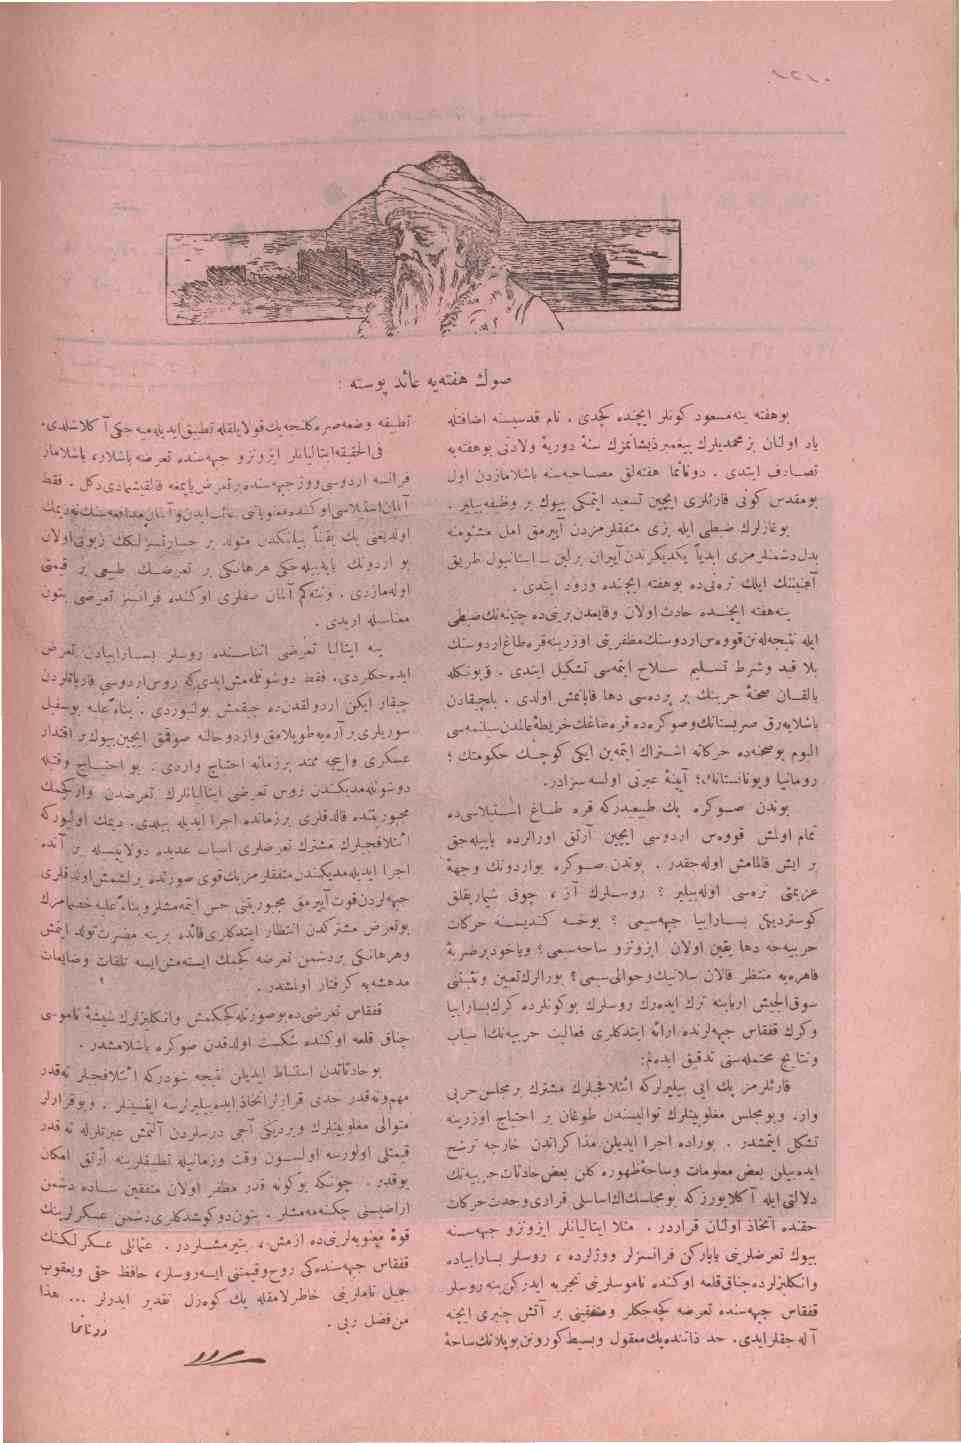 صوك هفته‌يه عائد پوسته :
بوهفته ينه‌مسعود كونلر ايچنده كچدى . نام قدسيسنه اضافتله
ياد اولنان بز محمديلرك پيغمبر ذيشانمزك سنهٔ دوريهٔ ولادتى بوهفته‌يه
تصادف ايتدى . دونانما هفته‌لق مصاحبه‌سنه باشلامازدن اول
بومقدس كونى قارئلرى ايچين تسعيد ايتمكى بيوك بر وظيفه بيلير .
بوغازلرك ضبطى ايله بزى متفقلرمزدن آييرمق امل مشئومنه
بدل دشمنلرمزى ابدياً يكديكرندن آييران برلين ــ استانبول طريق
آهنيننك ايلك ترەنى‌ده بوهفته ايچنده ورود ايتدى .
ينه هفته ايچنده حادث اولان وقايعدن برينى‌ده چتينه‌نك ضبطى
ايله نتيجه‌له‌نن قووه‌س اردوسنك مظفريتى اوزرينه قره‌طاغ اردوسنك
بلا قيد وشرط تسليم سلاح ايتمه‌سى تشكيل ايتدى . قوبونكله
بالقان صحنهٔ حربنك بر پرده‌سى دها قاپانمش اولدى . بلچيقادن
باشلايه‌رق صربستانك وصوكره‌ده قره طاغك خريطهٔ عالمدن سيلنمه‌سى
اليوم بوصحنه‌ده حركاته اشتراك ايتمه‌ين ايكى كوچك حكومتك ؛
رومانيا ويونانستانك؛ آيينهٔ عبرتى اولسه سزادر.
بوندن صوكره پك طبيعيدركه قره طاغ استيلاسى‌ده
تمام اولمش قووه‌س اردوسى ايچين آرتق اورالرده ياپيله‌جق
بر ايش قالمامش اوله‌جقدر . بوندن صوكره بواردونك وجههٔ
عزيمتى نره‌سى اوله‌بيلير ؟ روسلرك آز ، چوق شماريقلق
كوستردیكى بسارابيا جبهه‌سيمى ؟ يوخسه كنديسنه حركات
حربيه‌جه دها يقين اولان ايزونزو ساحه‌سيمى ؟ وياخود بر ضربهٔ
قاهره‌يه منتظر قالان سلانيك وحوالى‌سيمى ؟ بورالرك تعيين وتثبتنى
سوق‌الجيش اربابنه ترك ايده‌رك روسلرك بوكونلرده كرك بسارابيا
وكرك قفقاس جبهه‌لرنده ارائه ايتدكلرى فعاليت حربيه‌نك اسباب
ونتايج محتمله‌سنى تدقيق ايده‌لم:
قارئلرمز پك ايى بيليرلركه ائتلافجيلرك مشترك بر مجلس حربى
وار. وبومجلس مغلوبيتلرك تواليسندن طوغان بر احتياج اوزرينه
تشكل ايتمشدر . بوراده اجرا ايديلن مذاكراتدن خارجه ترشح
ايده‌بيلن بعض معلومات وساحهٔ ظهوره كلن بعض حادثات حربيه‌نك
دلالتى ايله آكلايورزكه بومجلسك اك اساسلى قرارى وحدت حركات
حقنده اتخاذ اولنان قراردر. مثلا ايتاليانلر ايزونزو جبهه‌سنه
بيوك تعرضلرينى ياپاركن فرانسزلر ووژلرده ، روسلر بسارابياده
وانكليزلرده جناق‌قلعه اوكنده ناموسلرينى تجربه ايدركن ينه روسلر
قفقاس جبهه‌سنده تعرضه كچه‌جكلر ومتفقينى بر آتش چنبرى ايچنه
آله‌جقلر ايدى. حد ذاتنده پك معقول وبسيط كورونن بوپلانك ساحهٔ
تطبيقه وضعه صره كلنجه پك قولايلقله تطبيق ايديله‌ميه‌جكى آكلاشلدى.
فى‌الحقيقه ايتاليانلر ايزونزو جبهه‌سنده تعرضه باشلار، باشلاماز
فرانسه اردوسى ووژ جبهه‌سنده بر تعرض ياپمغه قالقيشمادى دكل . فقط
آلمان استيلاسى اوكنده معنوياتنى غائب ايدن وآلمان مدافعه‌سنك نه‌ديمك
اولديغنى پك يقيناً بيلمكدن متولد بر جسارتسزلكك زبونى اولان
بو اردونك ياپه‌بيله‌جكى هر هانكى بر تعرضك طبيعى بر قيمتى
اوله‌مازدى . ونته‌كم آلمان صفلرى اوكنده فرانسز تعرضى بتون
معناسيله اريدى .
ينه ايتاليا تعرضى اثناسنده روسلر بسارابيادن تعرض
ايده‌جكلردى. فقط دوشونله‌مش ايدى‌كه روس اردوسى قارپاتلردن
چيقار ايكن اردولقدن‌ده چيقمش بولنيوردى . بناءً عليه بوسفيل
سوريلرى بر آره‌يه طوپلامق واردو حالنه صوقمق ايچين بيوك بر اقتدار
عسكرى وايجه ممتد بر زمانه احتياج واردى . بو احتياج وقتيله
دوشونله‌مديكندن روس تعرضى ايتاليانلرك تعرضدن وازكچمك
مجبوريتنده قالدقلرى بر زمانده اجرا ايديله بيلدى. ديمك اوليوركه
ائتلافجيلرك مشترك تعرضلرى اسباب عديده دولاييسيله بر آنده
اجرا ايديله‌مديكندن متفقلرمز پك قوى صورتده يرلشمش اولدقلرى
جبهه‌لردن قوت آييرمق مجبوريتنى حس ايتمه‌مشلر وبناءً عليه خصمامزك
بوتعرض مشتركدن انتظار ايتدكلرى فائده يرينه مضرت تولد ايتمش
وهر هانكى بر دشمن تعرضه كچمك ايسته‌مش ايسه تلفات وضايعات
مدهشه‌يه كرفتار اولمشدر .
قفقاس تعرضى‌ده بوصورتله كچيكمش وانكليزلرك شيشهٔ ناموسى
جناق قلعه اوكنده شكست اولدقدن صوكره باشلامشدر .
بو حادثاتدن استنباط ايديلن نتيجه شودركه ائتلافجيلر نه‌قدر
مهم ونه‌قدر جدى قرارلر اتخاذ ايده بيليرلرسه ايتسينلر . وبوقرارلر
متوالى مغلوبيتلرك ويرديكى آجى درسلردن آلنمش عبرتلرله نه قدر
قيمتلى اولورسه اولسون وقت وزمانيله تطبيقلرينه آرتق امكان
يوقدر . چونكه بوكونه قدر مظفر اولان متفقين ساده دشمن
اراضيسنى چكنه‌مه‌مشلر . بتون دوكوشدكلرى دشمن عسكرلرينك
قوهٔ معنويه‌لرينى‌ده ازمش، بتيرمشلردر. عثمانلى عسكرلكنك
قفقاس جبهه‌سنده‌كى روح وقيمتنى ايسه روسلر، حافظ حقى ويعقوب
جميل ناملرينى خاطرلامقله پك كوزل تقدير ايدرلر ... هذا
من فضل ربى .
دونانما